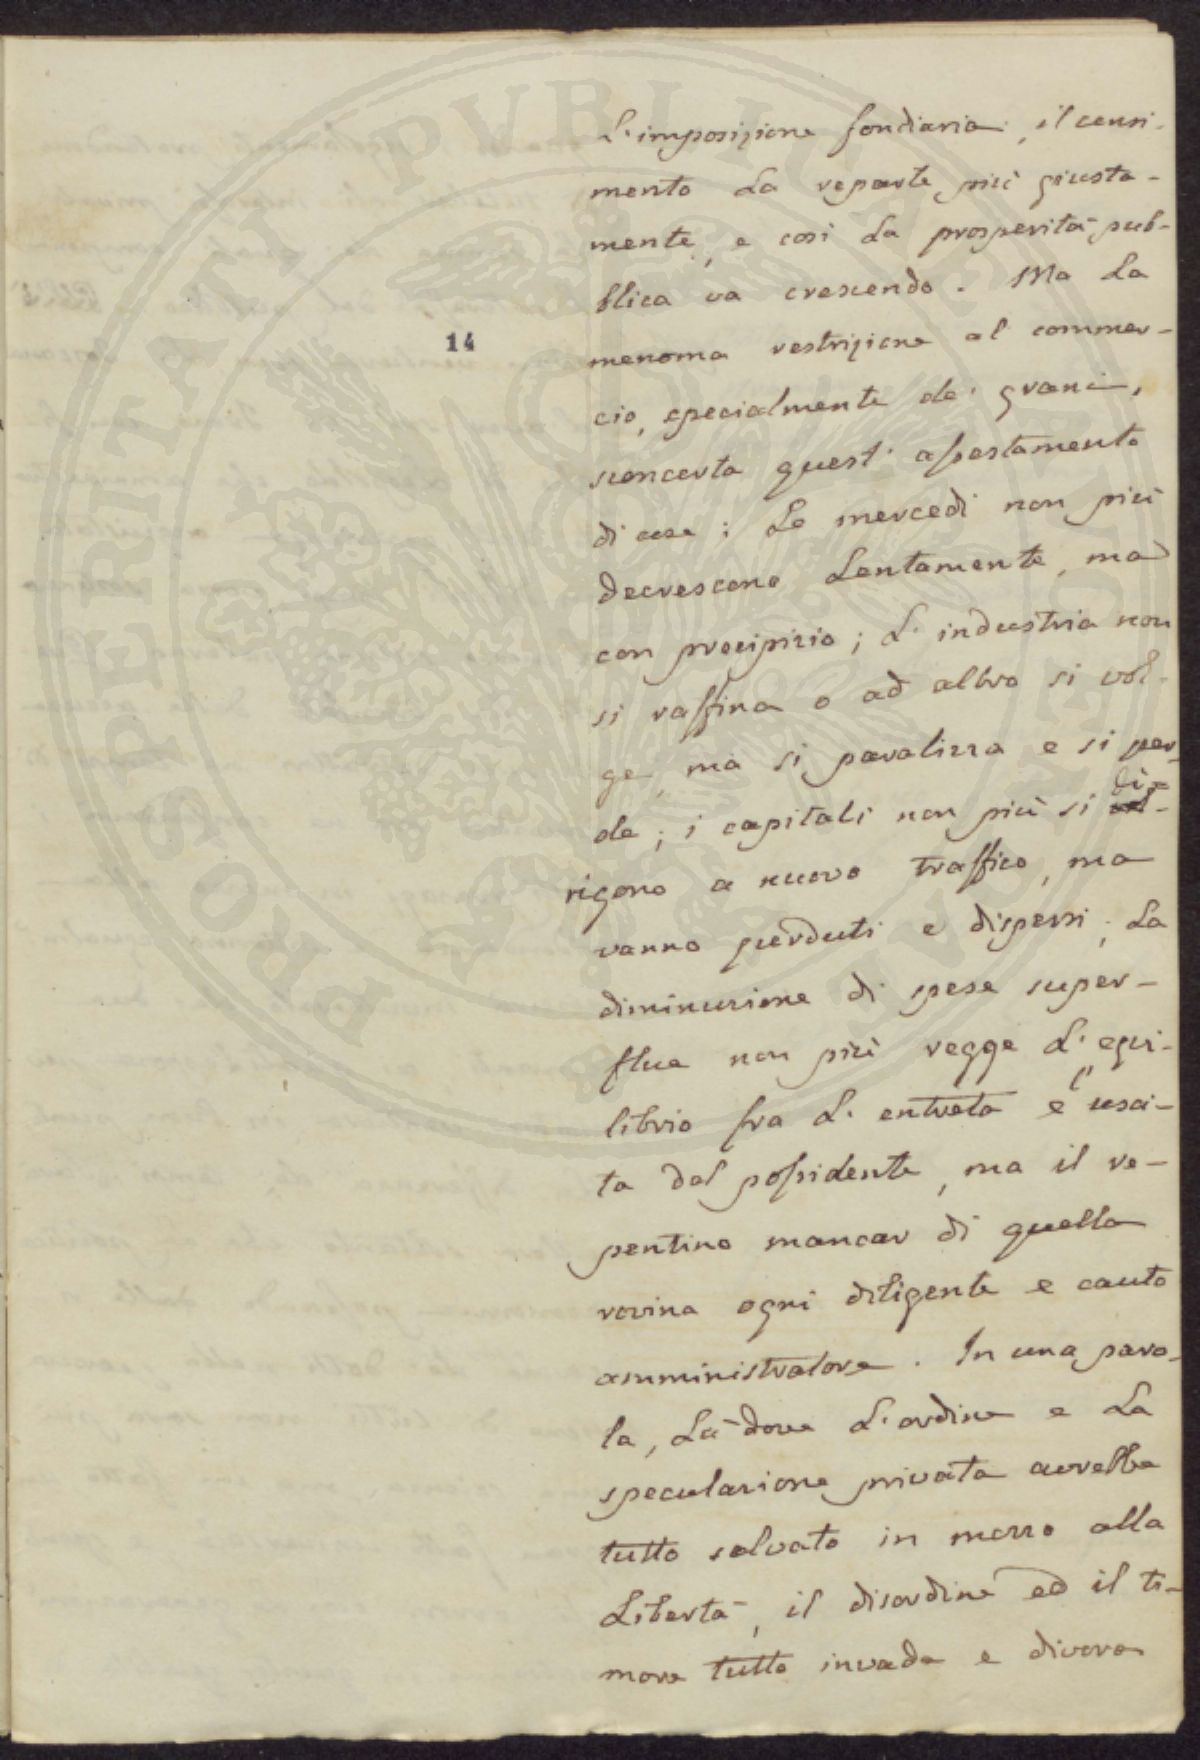 L'imposizione fondiaria, il censi-
mento la reparte più giusta-
mente, e così la prosperità pub-
blica va crescendo. Ma la
14
menoma restrizione al commer-
cio, specialmente de' grani,
sconcerta quest' assestamento
di cose; le mercedi non più
decrescono lentamente, ma
con precipizio; l'industria non
si raffina o ad altro si vol-
ge, ma si paralizza e si per-
de; i capitali non più si di-
rigono a nuovo traffico, ma
vanno perduti e dispersi; la
diminuzione di spese super-
flue non più regge l'equi-
librio fra l'entrata e l'usci-
ta del possidente, ma il re-
pentino mancar di quella
rovina ogni diligente e cauto
amministratore. In una paro-
la, là dove l'ordine e la
speculazione privata avrebbe
tutto salvato in mezzo alla
libertà, il disordine ed il ti-
more tutto invade e divora
PROSPERITATI PVBLICAE AVGENDAE